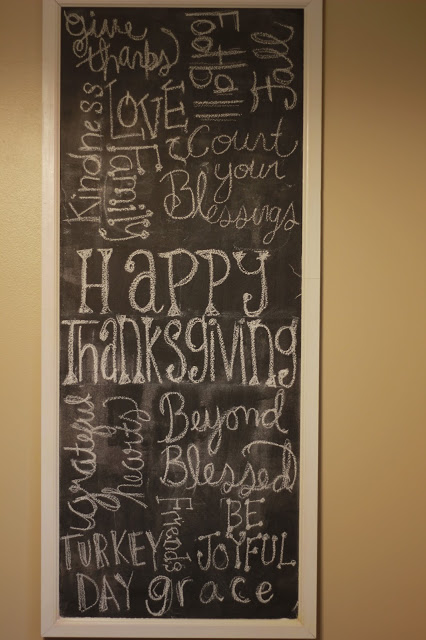 give
thanks
Football
Fall
Kindness
LOVE
Family
Count
your
Blessings
HAPPY
Thanksgiving
grateful
hearts
Beyond
Blessed
Friends
BE
JOYFUL
TURKEY
DAY
grace